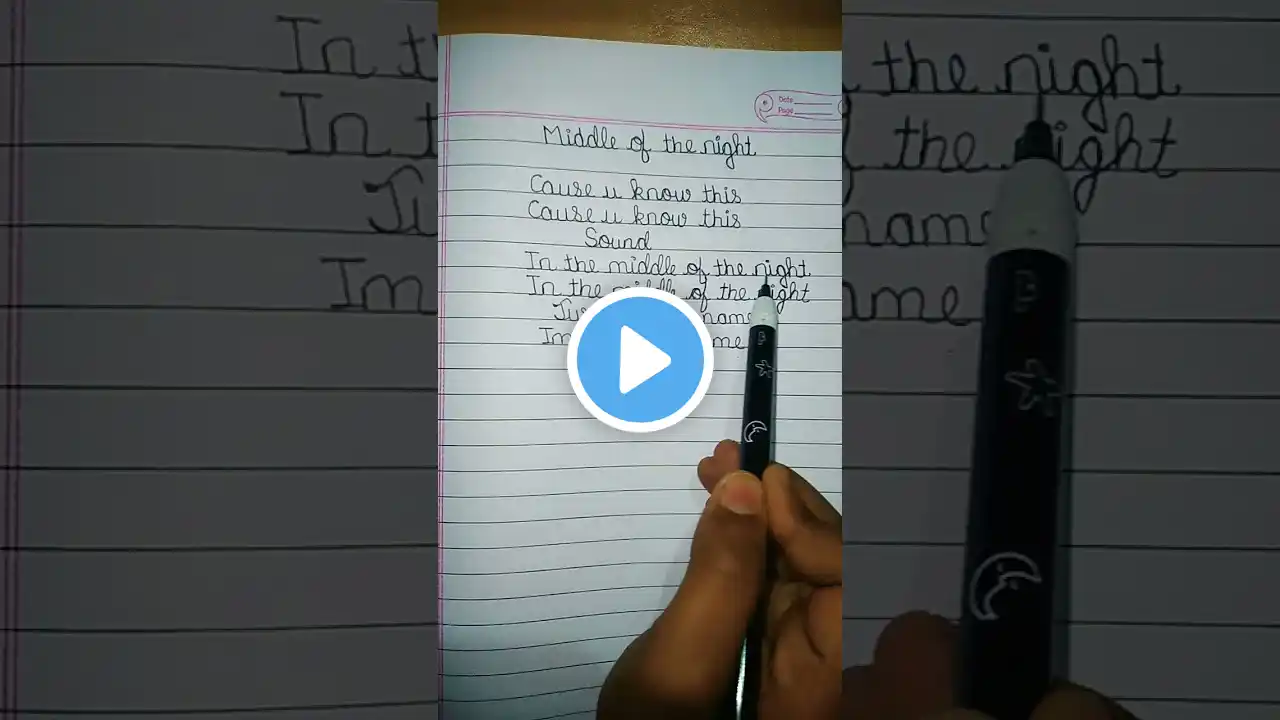 Date
Page
Middle of the night
Cause u know this
Cause u know this
Sound
In the middle of the night
In the middle of the night
name